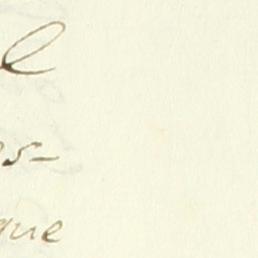 l
s-
que